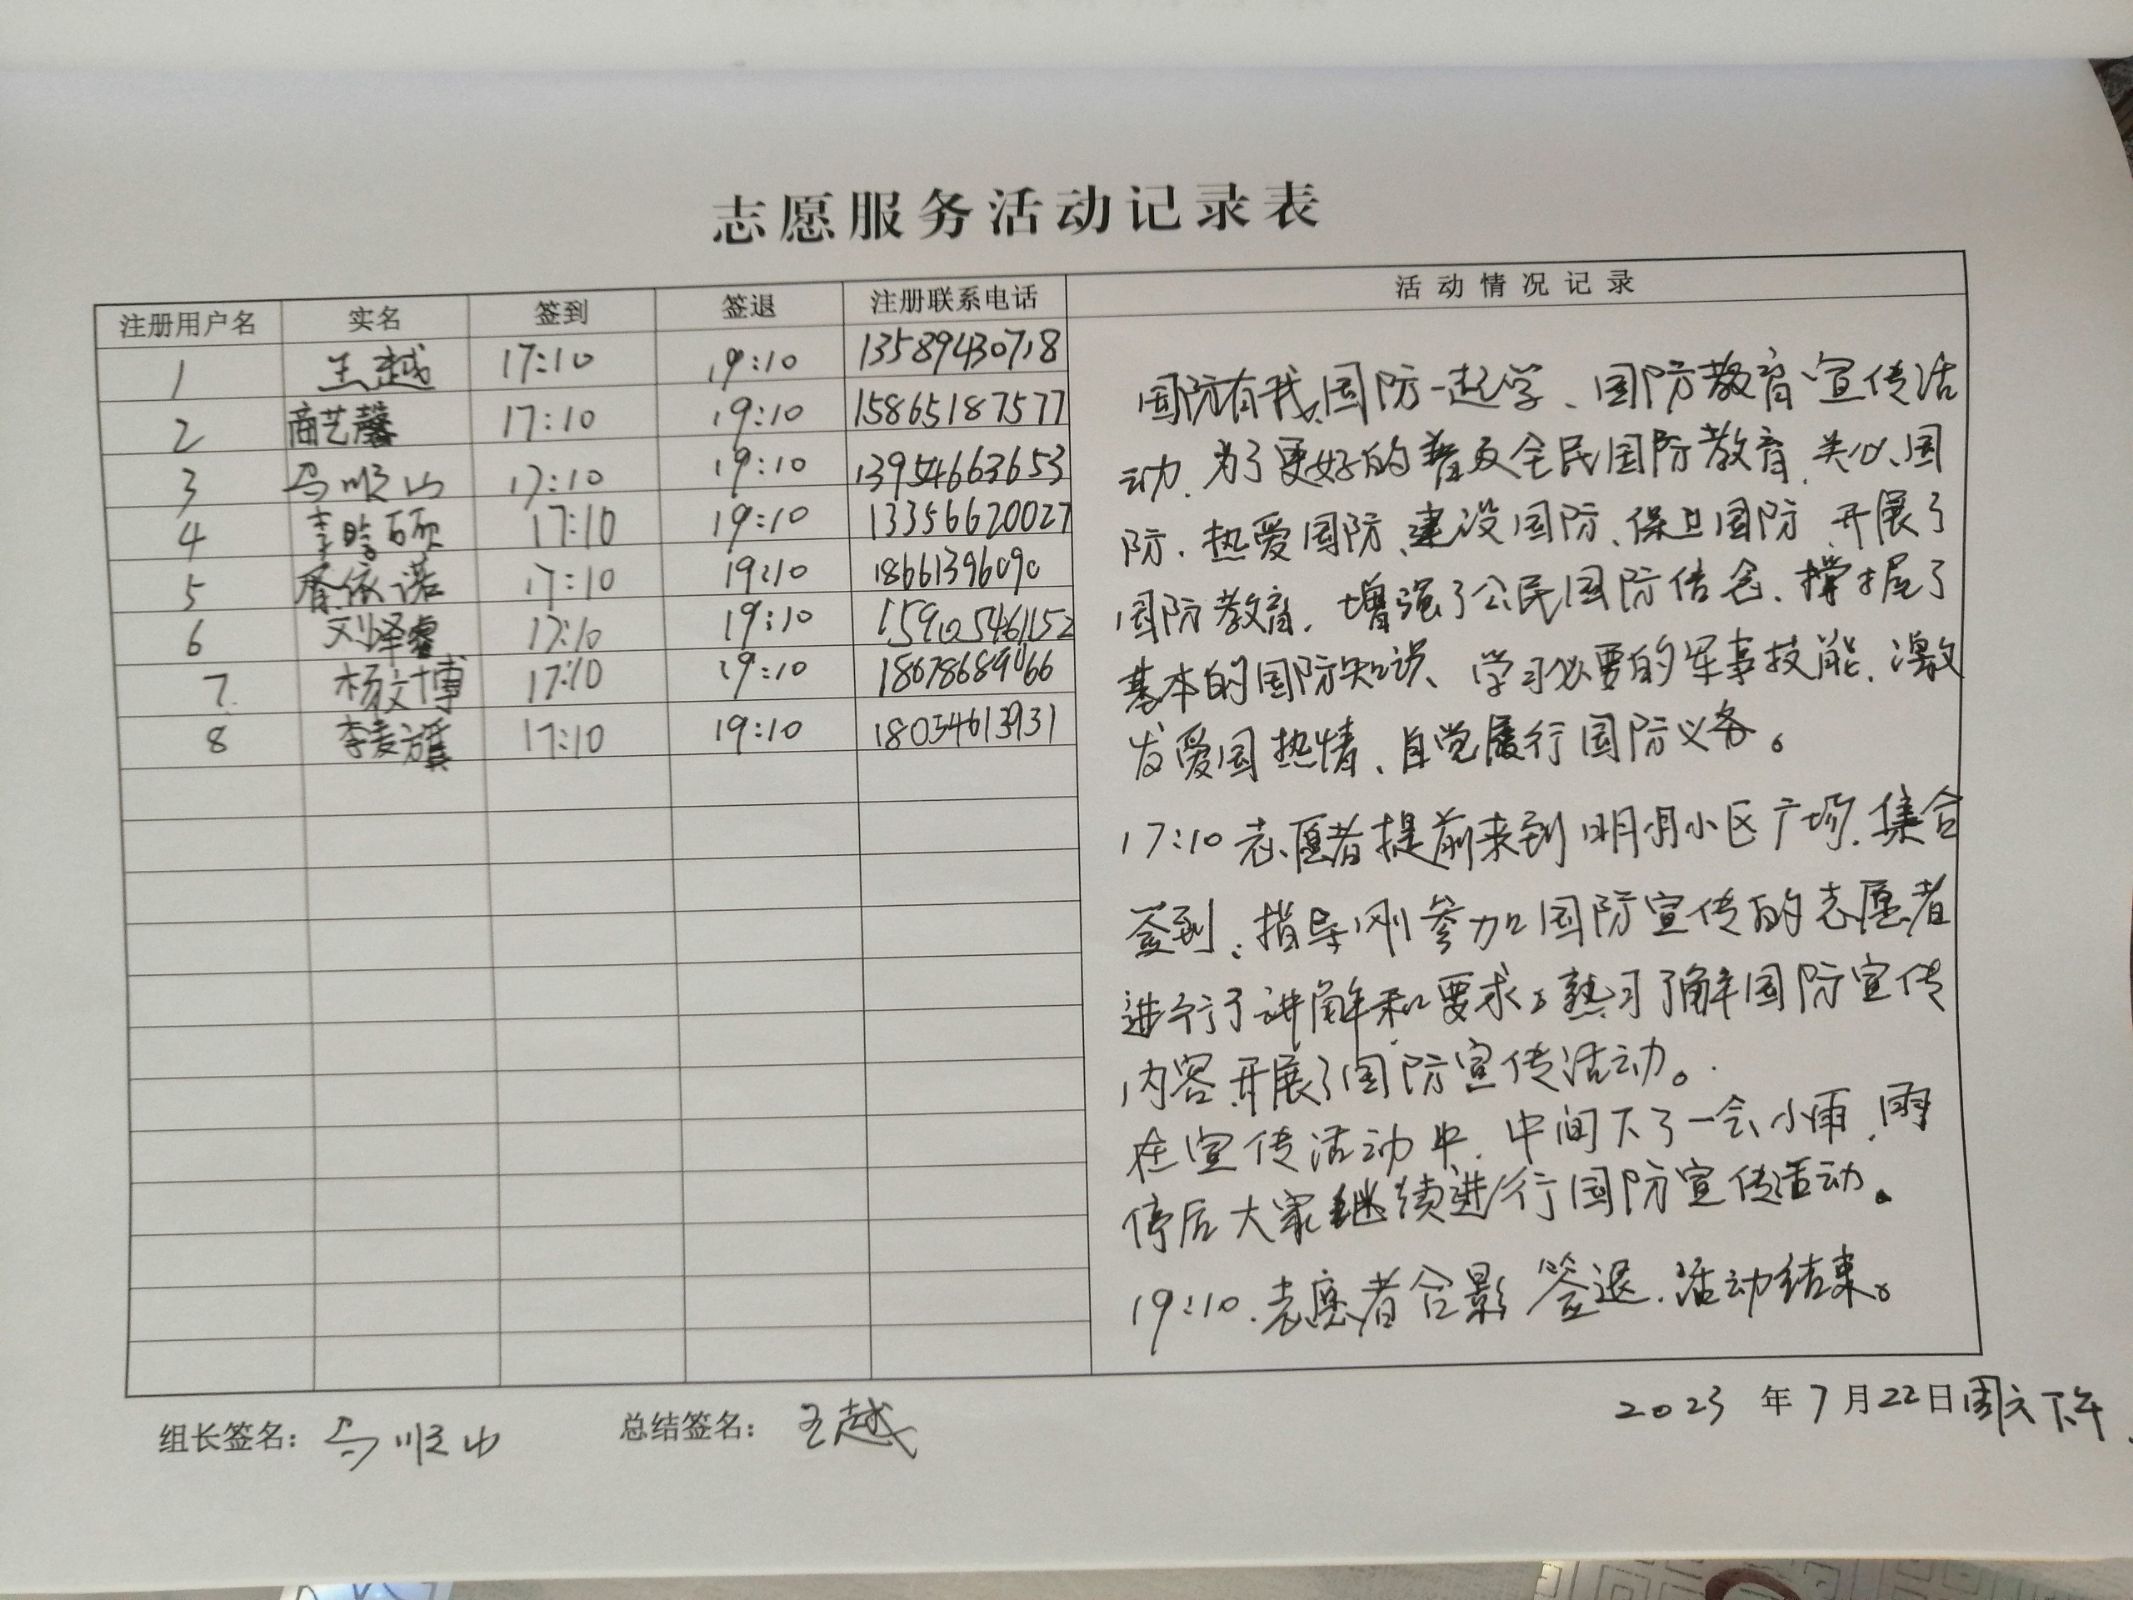 志愿服务活动记录表
注册用户名 实名 签到 签退 注册联系电话 活动情况记录
1 王越 17:10 19:10 13589430718
2 商艺馨 17:10 19:10 15865187577
3 马顺山 17:10 19:10 13954663653
4 李晗硕 17:10 19:10 13356620027
5 依诺 17:10 19:10 18661396090
6 刘泽睿 17:10 19:10
7 杨文博 17:10 19:10
8 李麦旗 17:10 19:10 18054613931
国防有我、国防一起学、国防教育宣传活
动.为了更好的普及全民国防教育.关心国
防.热爱国防、建设国防、保卫国防.开展了
国防教育.增强了公民国防信念、掌握了
基本的国防知识、学习必要的军事技能.激
发爱国热情、自觉履行国防义务。
17:10志愿者提前来到明月小区广场.集合
签到.指导刚参加国防宣传的志愿者
进行了讲解和要求。熟习了解国防宣传
内容.开展了国防宣传活动。
在宣传活动中.中间下了一会小雨.雨
停后大家继续进行国防宣传活动。
19:10.志愿者合影 签退.活动结束。
组长签名: 马顺山 总结签名: 王越 2023年7月22日周六下午.